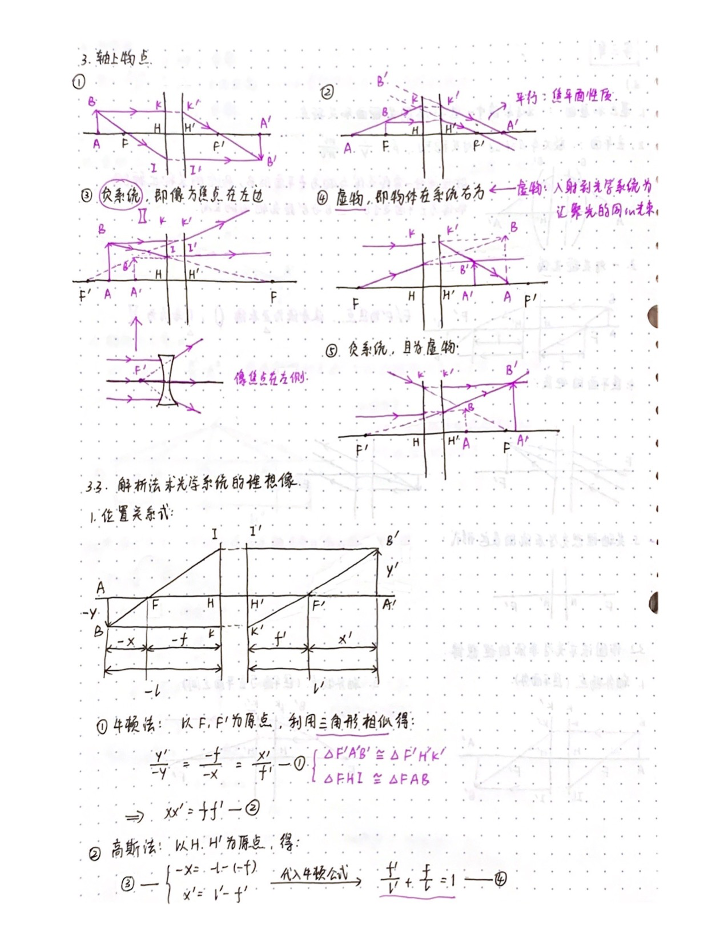 3. 轴上物点
①
B K K' A'
A F H H' F'
I I' B'
②
B' K K' 平行: 焦平面性质
B
A F H H' F' A'
③ 负系统, 即像方焦点在左边
Ⅱ
B K K'
I I'
B'
F' A A' H H' F
F'
像焦点在左侧.
④ 虚物, 即物体在系统右方 ← 虚物: 入射到光学系统为
汇聚光的同心光束.
K K' B
B'
F H H' A' A F'
⑤ 负系统, 且为虚物:
K K' B'
B
F' H H' A F A'
3.3. 解析法求光学系统的理想像.
1. 位置关系式:
I I' B'
y'
A F H H' F' A'
-y
B K K'
-x -f f' x'
-l l'
① 牛顿法: 以 F, F' 为原点, 利用三角形相似得:
y'/-y = -f/-x = x'/f' — ① { △F'A'B' ≅ △F'H'K'
△FHI ≅ △FAB
⇒ xx' = ff' — ②
② 高斯法: 以 H, H' 为原点, 得:
③ — { -x = -l-(-f)
x' = l'-f' 代入牛顿公式 → f'/l' + f/l = 1 — ④